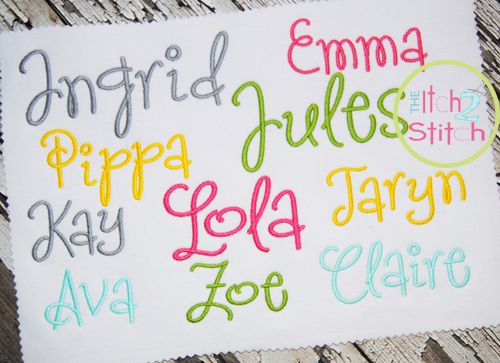 Ingrid
Emma
Jules
Pippa
Lola
Taryn
Kay
Ava
Zoe
Claire
THE Itch 2 Stitch